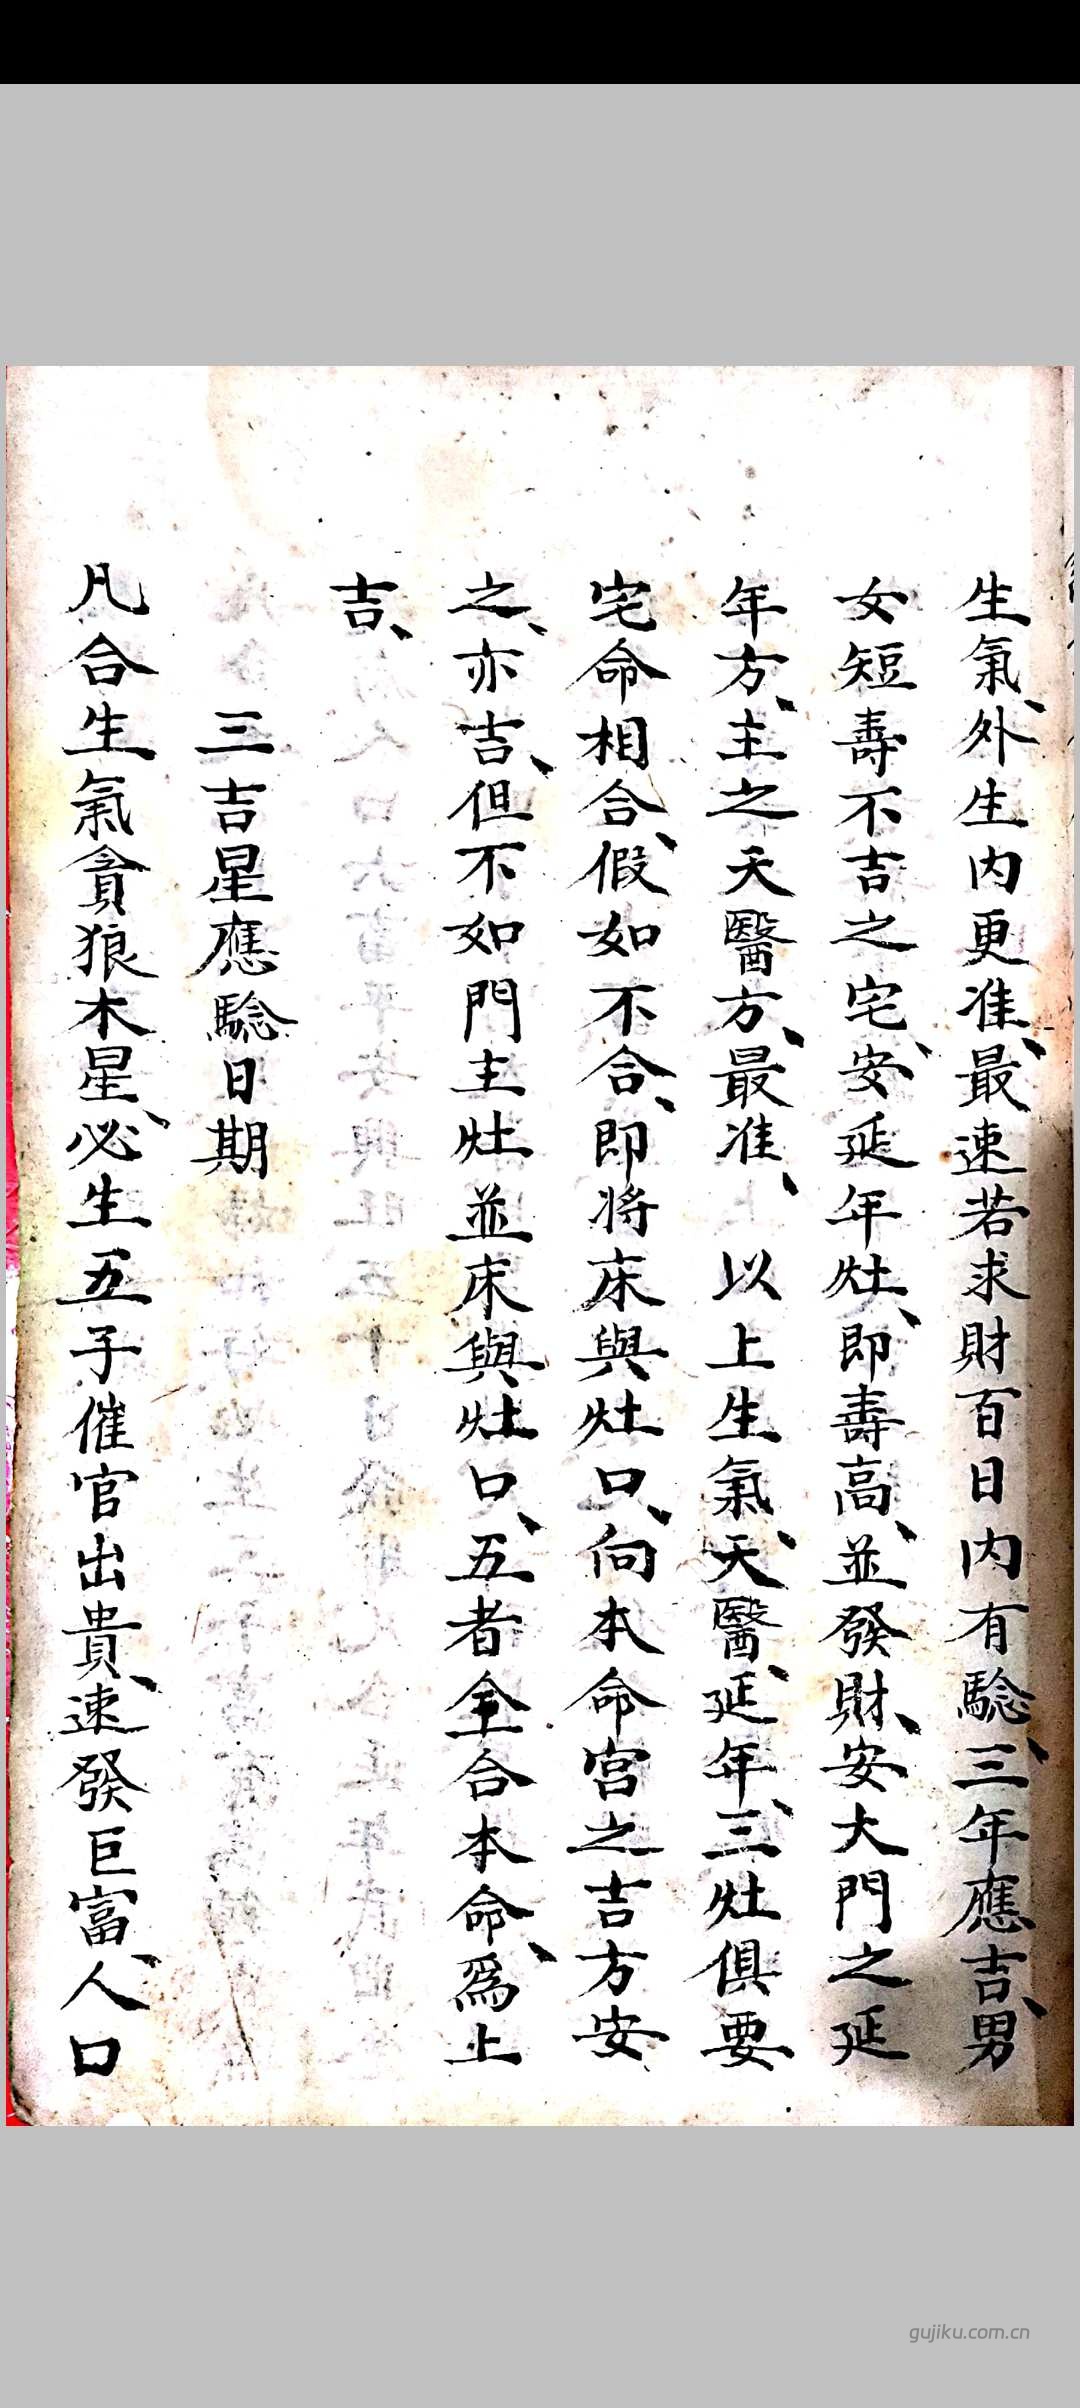 生氣、外生内更准、最速若求財百日内有騐、三年應吉、男
女短壽不吉之宅、安延年灶、即壽高、並發財、安大門之延
年方、主之天醫方、最准、以上生氣、天醫、延年、三灶俱要
宅命相合、假如不合、即将床與灶口、向本命宫之吉方安
之、亦吉、但不如門主灶並床與灶口、五者全合本命、爲上
吉、
三吉星應騐日期
凡合生氣貪狼木星、必生五子催官出貴、速發巨富、人口
gujiku.com.cn